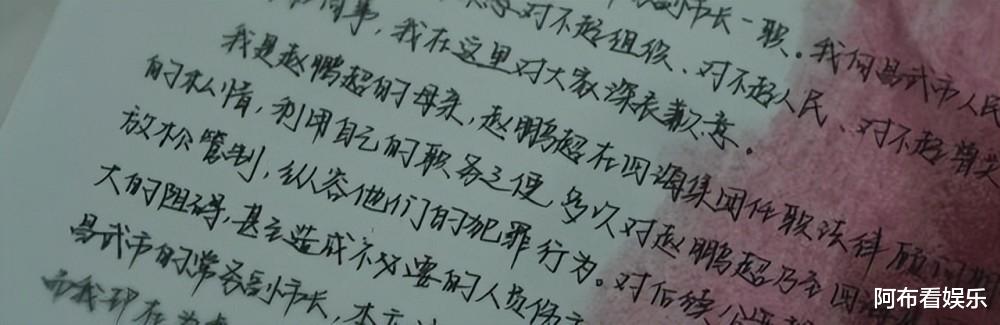 副市长一职。我向昌武市人民
同事,我在这里对大家深表歉意。
对不起组织、对不起人民、对不起曾关
我是赵鹏超的母亲,赵鹏超在四海集团任职法律顾问
的私情,利用自己的职务之便,多次对赵鹏超乃至四海
放松管制,纵容他们的犯罪行为。对后续
大的阻碍,甚至造成不必要的人员伤
昌武市的常务副市长,本应
而我却在
阿布看娱乐